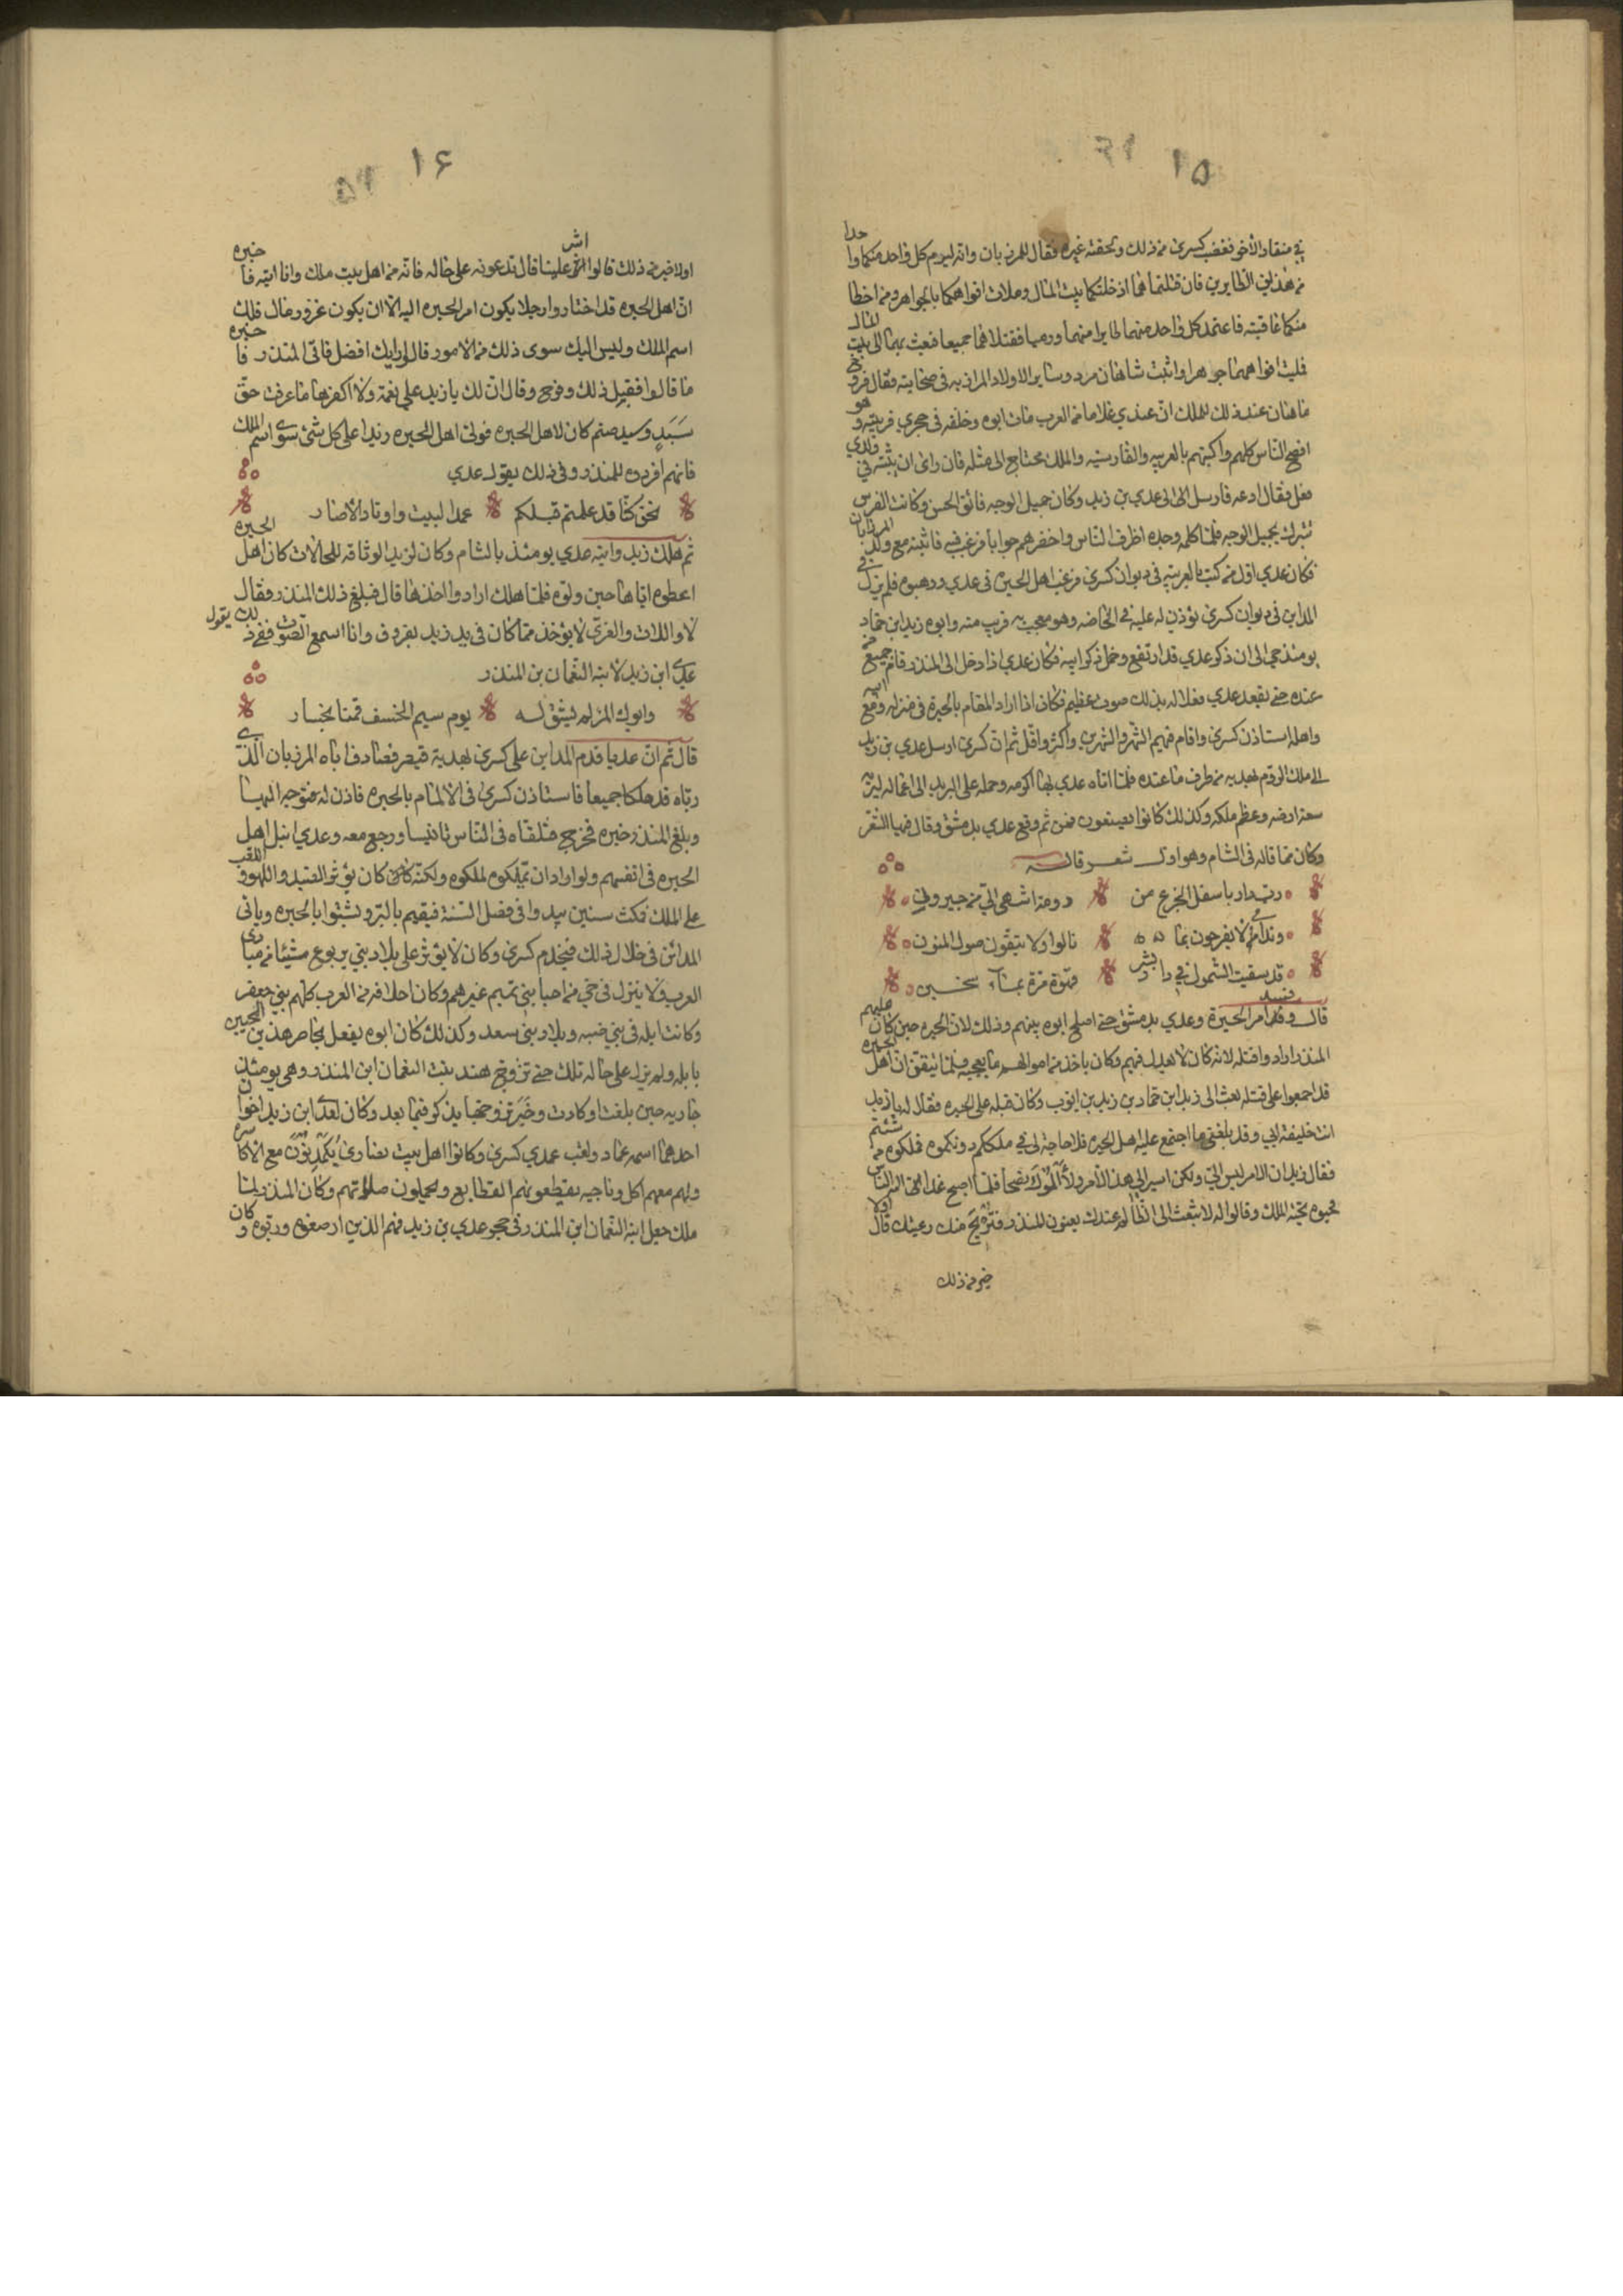 ١٥
في منقار الآخر فغضب كسرى من ذلك ولحقته غيره فقال للمرزبان وابنه ليرم كل واحد منكما واحدا
من هذين الطايرين فان قتلتماهما ادخلتكما بيت المال وملات افواهكما بالجواهر ومن اخطا
منكما عاقبته فاعتمد كل واحد منهما طايرا منهما ورميا فقتلاهما جميعا فبعث بهما الى بيت المال
فمليت افواههما جواهرا واثبت شاهان مرد وساير الاولاد المرازبه في صحابته فقال فروخ
ماهان عند ذلك للملك ان عندي غلاما من العرب مات ابوه وخلفه في حجري فربيته وهو
افصح الناس كلهم واكتبهم بالعربيه والفارسيه والملك محتاج الى مثله فان راى ان يثبته في ولدي
فعل فقال ادعه فارسل الى عدي بن زيد وكان جميل الوجه فائق الحسن وكانت الفرس
تتبرك بجميل الوجه فلما كلمه وجده اظرف الناس واحضرهم جوابا فرغب فيه فاثبته مع ولد المرزبان
فكان عدي اول من كتب بالعربية في ديوان كسرى فرغب اهل الحيره في عدي ورهبوه فلم يزل في
المداين في ديوان كسرى يؤذن له عليه في الخاصه وهو معجب به قريب منه وابوه زيد ابن حماد
يومئذ حي الى ان ذكر عدي قد ارتفع وخمل ذكر ابيه فكان عدي اذا دخل الى المنذر قام جميع من
عنده حتى يقعد عدي فعلا له بذلك صوت عظيم فكان اذا اراد المقام بالحيرة في منزله ومع ابيه
واهله استاذن كسرى واقام فيهم الشهر والشهرين واكثر واقل ثم ان كسرى ارسل عدي بن زيد
الى ملك الروم بهديه من طرف ما عنده فلما اتاه عدي بها اكرمه وحمله على البريد الى اعماله ليريه
سعة ارضه وعظم ملكه وكذلك كانوا يصنعون فمن ثم وقع عدي بدمشق وقال فيها الشعر
وكان مما قاله في الشام وهو اول شعر قاله
رب دار باسفل الجزع من دومة اشهى الي من جيرون
وندامى لا يفرحون بما نالوا ولا يتقون صول المنون
قد سقيت الشمول في دار بشر قهوة مزة بماء سخين
قال وفسد امر الحيرة وعدي بدمشق حتى اصلح ابوه بينهم وذلك لان الحيره حين كان عليهم
المنذر ارادوا قتله لانه كان لا يعدل فيهم وكان ياخذ من اموالهم ما يعجبه فلما تيقن ان اهل الحيره
قد اجمعوا على قتله بعث الى زيد ابن حماد بن زيد بن ايوب وكان قبله على الحيره فقال له يا زيد
انت خليفة ابي وقد بلغني ما اجتمع عليه اهل الحيره فلا حاجة لي في ملككم دونكموه فملكوه من شئتم
فقال زيد ان الامر ليس الي ولكن اسير لي هذا الامر ولا آلوك نصحا فلما اصبح غدا اليه الناس
فحيوه تحية الملك وقالوا له لا تبعث الى الظالم عندك يعنون المنذر فتريح منه رعيتك قال اولا
خير من ذلك
١٦
اولا خير من ذلك قالوا اشر علينا قال تدعونه على حاله فانه من اهل بيت ملك وانا اتيه فاخبره
ان اهل الحيره قد اختاروا رجلا يكون امر الحيره اليه الا ان يكون غزو وقتال فلك
اسم الملك وليس اليك سوى ذلك من الامور قالوا رايك افضل فاتى المنذر فاخبره
ما قالوا فقبل ذلك وفرح وقال ان لك يا زيد علي نعمة ولا اكفرها ما عرفت حق
سَبَدٍ وسبد صنم كان لاهل الحيره فولى اهل الحيره زيدا على كل شئ سوى اسم الملك
فانهم اقروه للمنذر وفي ذلك يقول عدي
نحن كنا قد علمتم قبلكم عمد البيت واوتاد الأصار
ثم هلك زيد وابنه عدي يومئذ بالشام وكان لزيد الوف ناقه للحمالات كان اهل الحيره
اعطوه اياها حين ولوه فلما هلك ارادوا اخذها قال فبلغ ذلك المنذر فقال
لا واللات والعزى لا يؤخذ مما كان في يد زيد تفروق وانا اسمع الصوت ففي ذلك يقول
عدي ابن زيد لابنه النعمان بن المنذر
وابوك المرء لم يشق له يوم سيم الخسف فمنا بخسار
قال ثم ان عديا قدم المداين على كسرى بهدية قيصر فصادف اباه المرزبان الذي
رباه قد هلكا جميعا فاستاذن كسرى في الالمام بالحيره فاذن له فتوجه اليها
وبلغ المنذر خبره فخرج فتلقاه في الناس ورجع معه وعدي انبل اهل
الحيره في انفسهم ولو اراد ان يملكوه لملكوه ولكنه كان يؤثر الصيد واللهو واللعب
على الملك فمكث سنين يبدو في فصل السنة فيقيم بالبر ويشتوا بالحيره وياتي
المدائن في خلال ذلك فيخدم كسرى وكان لا يؤثر على بلاد بني يربوع شيئا من مبادي
العرب ولا ينزل في حي من احيا بني تميم غيرهم وكان اخلاؤه من العرب كلهم بني جعفر
وكانت ابله في بني ضبه وبلاد بني سعد وكذلك كان ابوه يفعل لا يجاوز هذين الحيين
بابله ولم يزل على حاله تلك حتى تزوج هند بنت النعمان ابن المنذر وهي يومئذ
جاريه حين بلغت او كادت وخبر تزوجها يذكر فيما بعد وكان لعدي ابن زيد اخوان
احدهما اسمه عمار ولقب عمدي كسرى وكانوا اهل بيت نصارى يكونون مع الاكاسره
ولهم معهم اكل وناحيه يقطعونهم القطايع ويجزلون صلاتهم وكان المنذر لما
ملك جعل ابنه النعمان ابن المنذر في حجر عدي بن زيد فهم الذين ارضعوه وربوه وكان